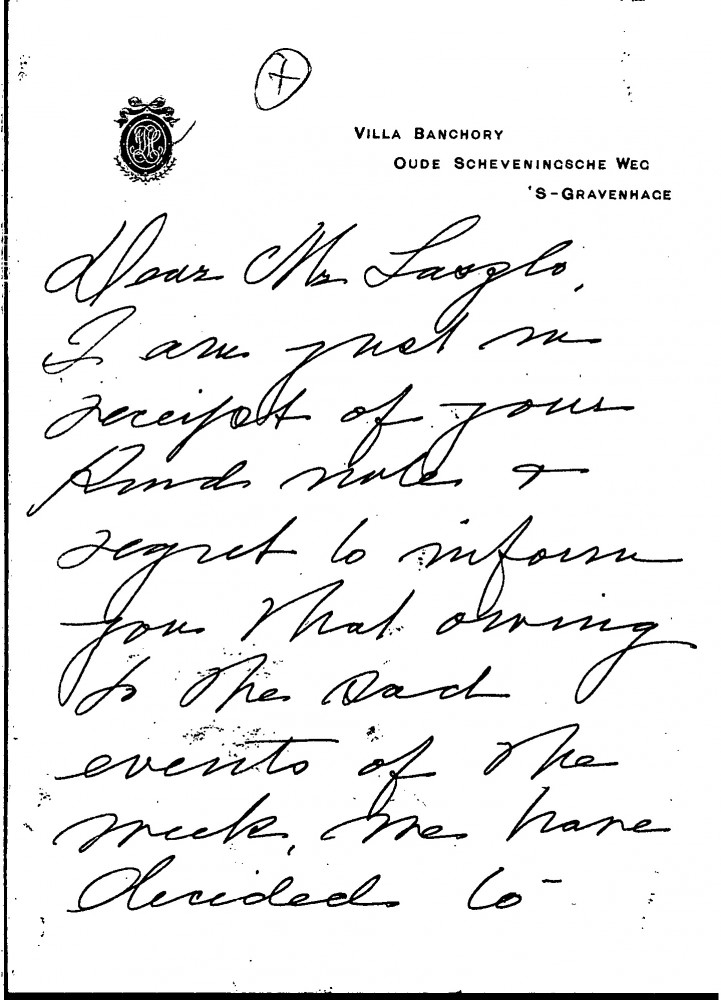 7
VILLA BANCHORY
OUDE SCHEVENINGSCHE WEG
'S-GRAVENHAGE
Dear Mr Laszlo,
I am just in
receipt of your
kind note &
regret to inform
you that owing
to the sad
events of the
week, we have
decided to-